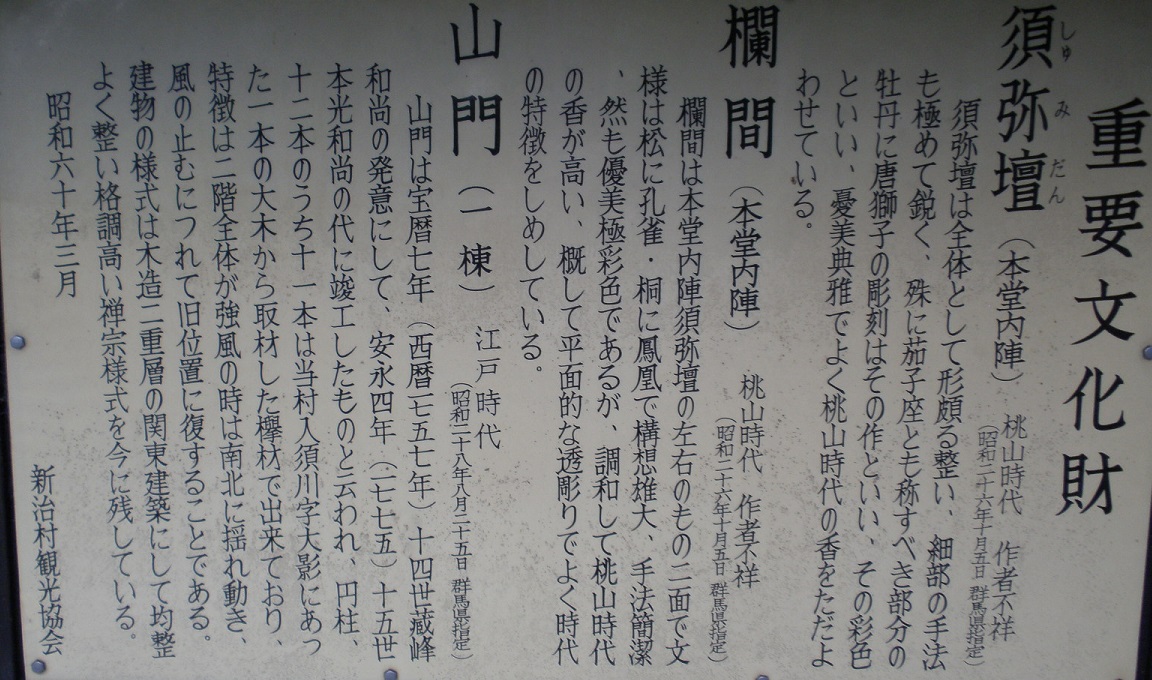 重要文化財
須弥壇（本堂内陣） 桃山時代 作者不祥
しゅ み だん
（昭和二十六年十月五日 群馬県指定）
須弥壇は全体として形頗る整い、細部の手法
も極めて鋭く、殊に茄子座とも称すべき部分の
牡丹に唐獅子の彫刻はその作といい、その彩色
といい、憂美典雅でよく桃山時代の香をただよ
わせている。
欄間（本堂内陣） 桃山時代 作者不祥
（昭和二十六年十月五日 群馬県指定）
欄間は本堂内陣須弥壇の左右のもの二面で文
様は松に孔雀・桐に鳳凰で構想雄大、手法簡潔
、然も優美極彩色であるが、調和して桃山時代
の香が高い、概して平面的な透彫りでよく時代
の特徴をしめしている。
山門（一棟） 江戸時代
（昭和二十八年八月二十五日 群馬県指定）
山門は宝暦七年（西暦一七五七年）十四世蔵峰
和尚の発意にして、安永四年（一七七五）十五世
本光和尚の代に竣工したものと云われ、円柱、
十二本のうち十一本は当村入須川字大影にあっ
た一本の大木から取材した欅材で出来ており、
特徴は二階全体が強風の時は南北に揺れ動き、
風の止むにつれて旧位置に復することである。
建物の様式は木造二重層の関東建築にして均整
よく整い格調高い禅宗様式を今に残している。
昭和六十年三月
新治村観光協会